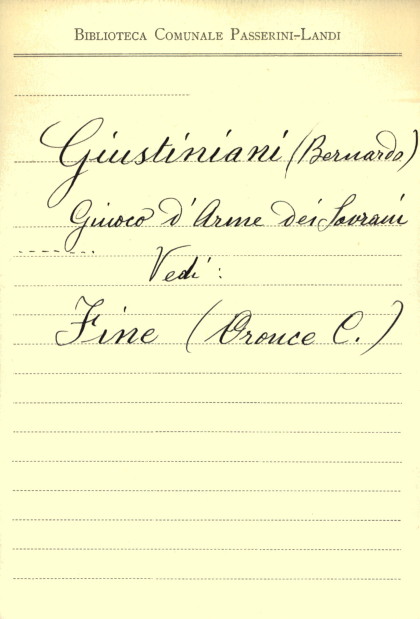 BIBLIOTECA COMUNALE PASSERINI-LANDI
Giustiniani (Bernardo)
Giuoco d'Arme dei Sovrani
Vedi:
Fine (Oronce C.)